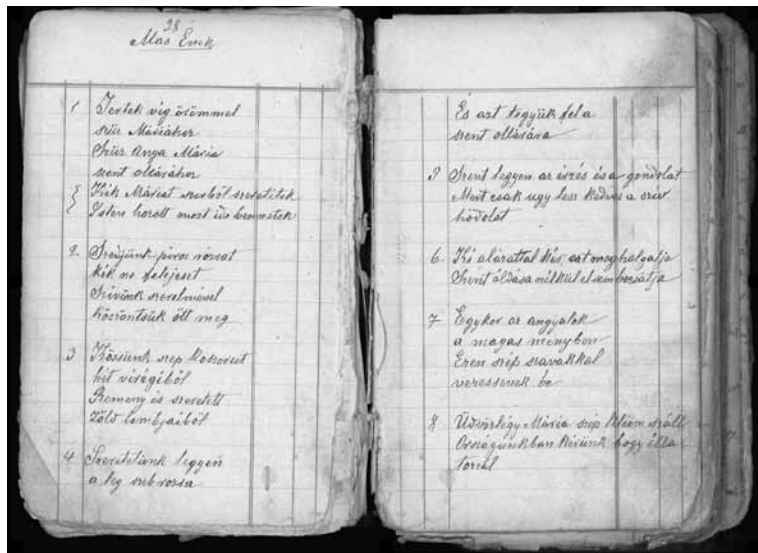 28
Más Ének
1 Jertek víg örömmel
szűz Máriához
Szűz Anya Mária
szent oltárához
Kik Máriát szívből szeretitek
Isten hozott most ide bennetek
2. Szedjünk piros rózsát
kék ne felejcset
Szívünk szerelmével
köszöntsük őtt meg
3 Kössünk szép koszorut
hit virágiból
Remény és szeretett
Zöld lombjaiból
4 Szeretetünk legyen
a leg szebrózsa
És azt tegyük fel a
szent oltárára
5 Szent legyen az érzés és a gondolat
Mert csak ugy lesz kedves a szív
hódolat
6. Ki alázattal kér, azt meghalgatja
Szent áldása nélkül el sem bocsátja
7 Egykor az angyalok
a magas menyben
Ezen szép szavakkal
veressenek be
8 Üdvözlégy Mária szép száll
Országunkban kérünk hogy